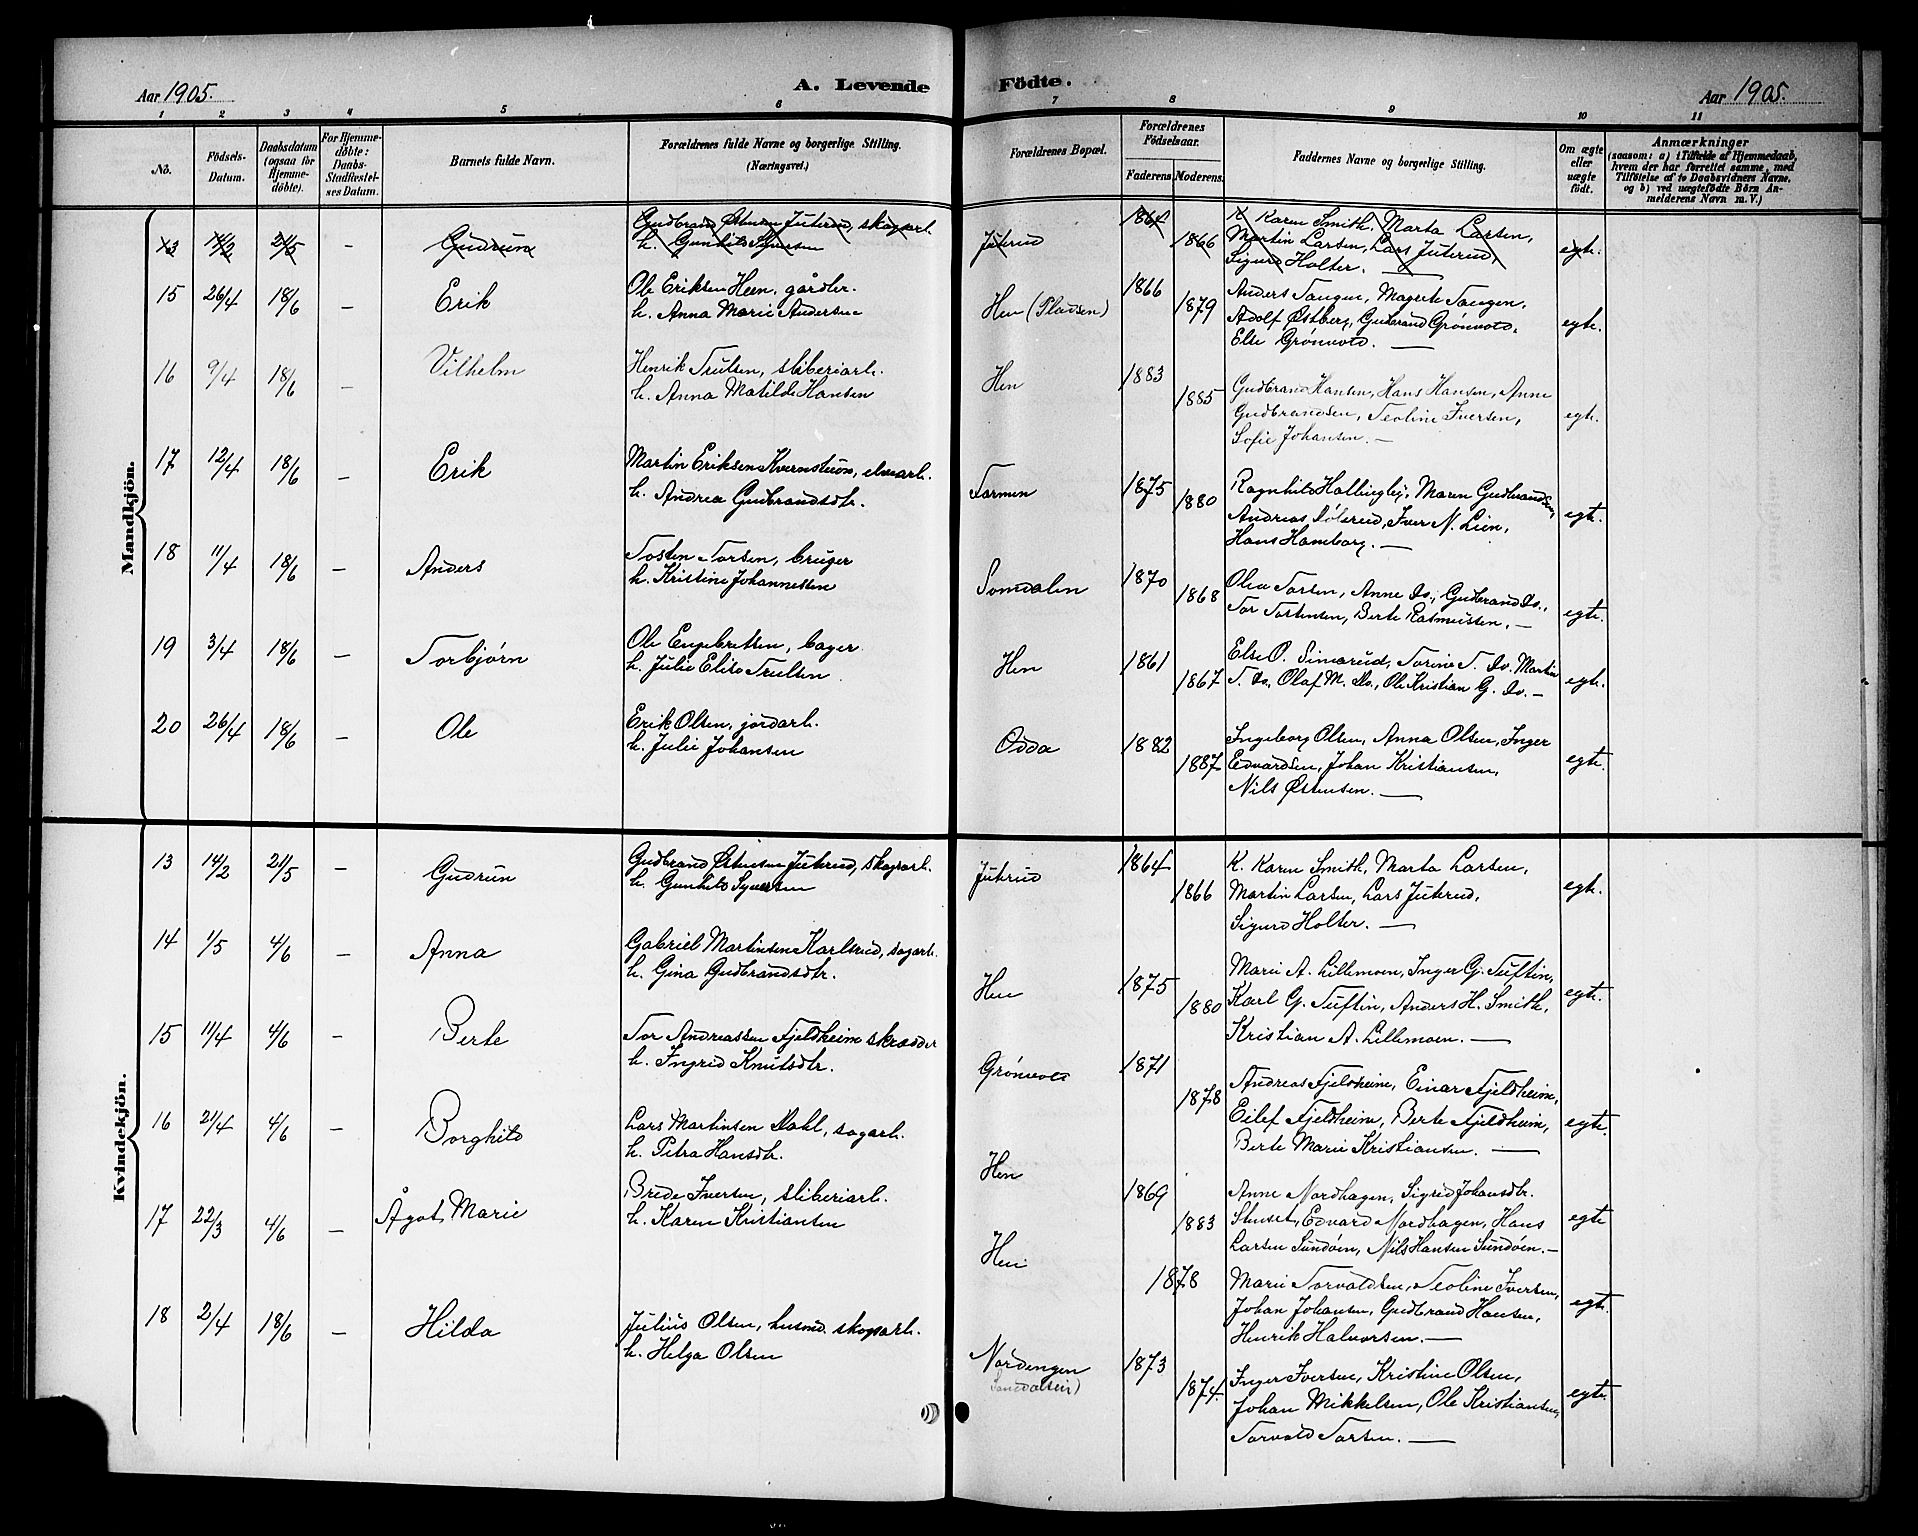 Aar 1905. A. Levende Födte. Aar 1905.
1 2 3 4 5 6 7 8 9 10 11
No.
Födsels-Datum.
Daabsdatum (ogsaa för Hjemme-døbte).
For Hjemme-døbte: Daabs-Stadfæstel-ses Datum.
Barnets fulde Navn.
Forældrenes fulde Navne og borgerlige Stilling. (Næringsvei.)
Forældrenes Bopæl.
Forældrenes Födselsaar.
Faderens. Moderens.
Faddernes Navne og borgerlige Stilling.
Om ægte eller uægte födt.
Anmærkninger
(saasom: a) i Tilfælde af Hjemmedaab, hvem der har forrettet samme, med Tilföielse af to Daabsvidners Navne, og b) ved uægtefödte Börn An-melderens Navn m. V.)
Mandkjön.
13 14/2 21/5 — Gudrun Gudbrand Østensen Juterud, skogarb. Juterud 1864 K. Karen Smith, Marta Larsen,
h. Gunhild Syversen 1866 Martin Larsen, Lars Juterud, egte.
Sigurd Holter. —
15 26/4 18/6 — Erik Ole Eriksen Heen, gårdbr. Hen (Pladsen) 1866 Anders Tangen, Magrete Tangen,
h. Anna Marie Andersen 1879 Adolf Østberg, Gudbrand Grønvold, egte.
Else Grønvold. —
16 9/4 18/6 — Vilhelm Henrik Trulsen, sliberiarb. Hen 1883
h. Anna Matilde Hansen 1885 Gudbrand Hansen, Hans Hansen, Anne
Gudbrandsen, Teoline Iversen, egte.
Sofie Johansen. —
17 12/4 18/6 — Erik Martin Eriksen Kvernstuen, elvearb. Tormen 1875 Ragnhild Hallingby, Maren Gudbrandsen,
h. Andrea Gudbrandsdtr. 1880 Andreas Sølerud, Iver N. Lien, egte.
Hans Hamborg. —
18 11/4 18/6 — Anders Tosten Torsen, bruger Somdalen 1870 Olea Torsen, Anne do., Gudbrand do.,
h. Kristine Johannessen 1868 Tor Tostensen, Berte Rasmussen. — egte.
19 3/4 18/6 — Torbjørn Ole Engebretsen, bager Hen 1861 Else O. Simarud, Torine T. do. Martin
h. Julie Elise Trulsen 1867 T. do., Olaf M. do., Ole Kristian G. do. — egte.
20 26/4 18/6 — Ole Erik Olsen, jordarb. Odda 1882 Ingeborg Olsen, Anna Olsen, Inger
h. Julie Johansen 1887 Edvardsen, Johan Kristiansen, egte.
Nils Østensen. —
Kvindekjön.
13 14/2 21/5 — Gudrun Gudbrand Østensen Juterud, skogarb. Juterud 1864 K. Karen Smith, Marta Larsen,
h. Gunhild Syversen 1866 Martin Larsen, Lars Juterud, egte.
Sigurd Holter. —
14 1/5 4/6 — Anna Gabriel Martinsen Karlsrud, sagarb. Hen 1875 Marie A. Lillemoen, Inger G. Tuftin,
h. Gina Gudbrandsdtr. 1880 Karl G. Tuftin, Anders H. Smith, egte.
Kristian A. Lillemoen. —
15 11/4 4/6 — Berte Tor Andreassen Fjeldheim skrædder Grønvold 1871 Andreas Fjeldheim, Einar Fjeldheim,
h. Ingrid Knutsdtr. 1878 Eilef Fjeldheim, Berte Fjeldheim, egte.
Berte Marie Kristiansen. —
16 21/4 4/6 — Borghild Lars Martinsen Dahl, sagarb. Hen 1869 Anne Nordhagen, Sigrid Johansdtr.
h. Petra Hansdtr. 1883 Stuset, Edvard Nordhagen, Hans egte
Larsen Sundøen, Nils Hansen Sundøen. —
17 22/3 4/6 — Ågot Marie Brede Iversen, sliberiarb. Hen 1878 Marie Torvaldsen, Teoline Iversen,
h. Karen Kristiansen Johan Johansen, Gudbrand Hansen, egte.
Henrik Halvorsen. —
18 2/4 18/6 — Hilda Julius Olsen, husmd. skogsarb. Nordengen 1873 Inger Iversen, Kristine Olsen,
h. Helga Olsen (Somdalen) 1874 Johan Mikkelsen, Ole Kristiansen, egte.
Torvald Torsen. —